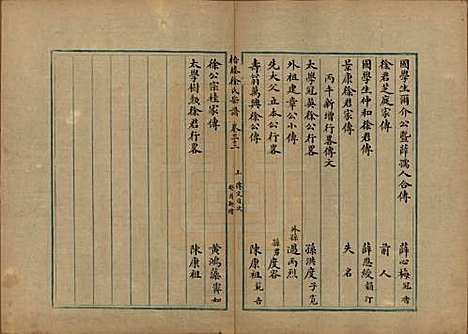 國學生爾介公暨薛孺人合傳 薛心梅冠香
徐君芝庭家傳 前人
國學生仲和徐君傳 薛思綬韻汀
景康徐君家傳 失名
丙午新增行畧傳文
太學冠英徐公行畧 孫洪度子寬
外祖建章公小傳 外孫過而烈
先大父立本公行畧 孫君度容
壽翁萬興徐公傳 陳康祖
梧塍徐氏宗譜 卷三十二 上
徐公宗桂家傳 黃鴻藻霽如
太學樹勳徐君行畧 陳康祖